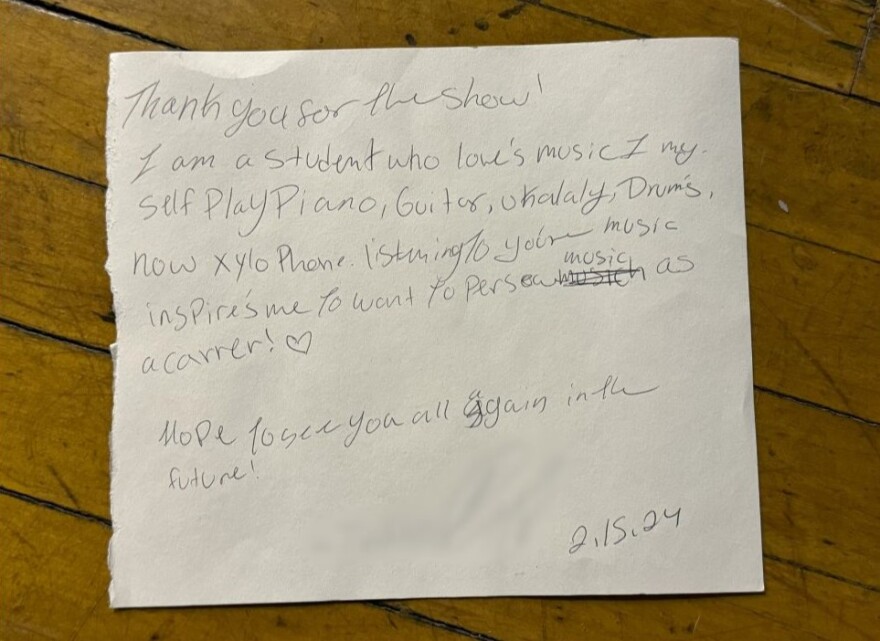 Thank you for the show!
I am a student who love's music I my-
self Play Piano, Guitar, ukalaly, Drum's,
now xylo Phone. listning to you're music
inspire's me to want to persew music as
a carrer! ♡
Hope to see you all again in the
future!
2.15.24